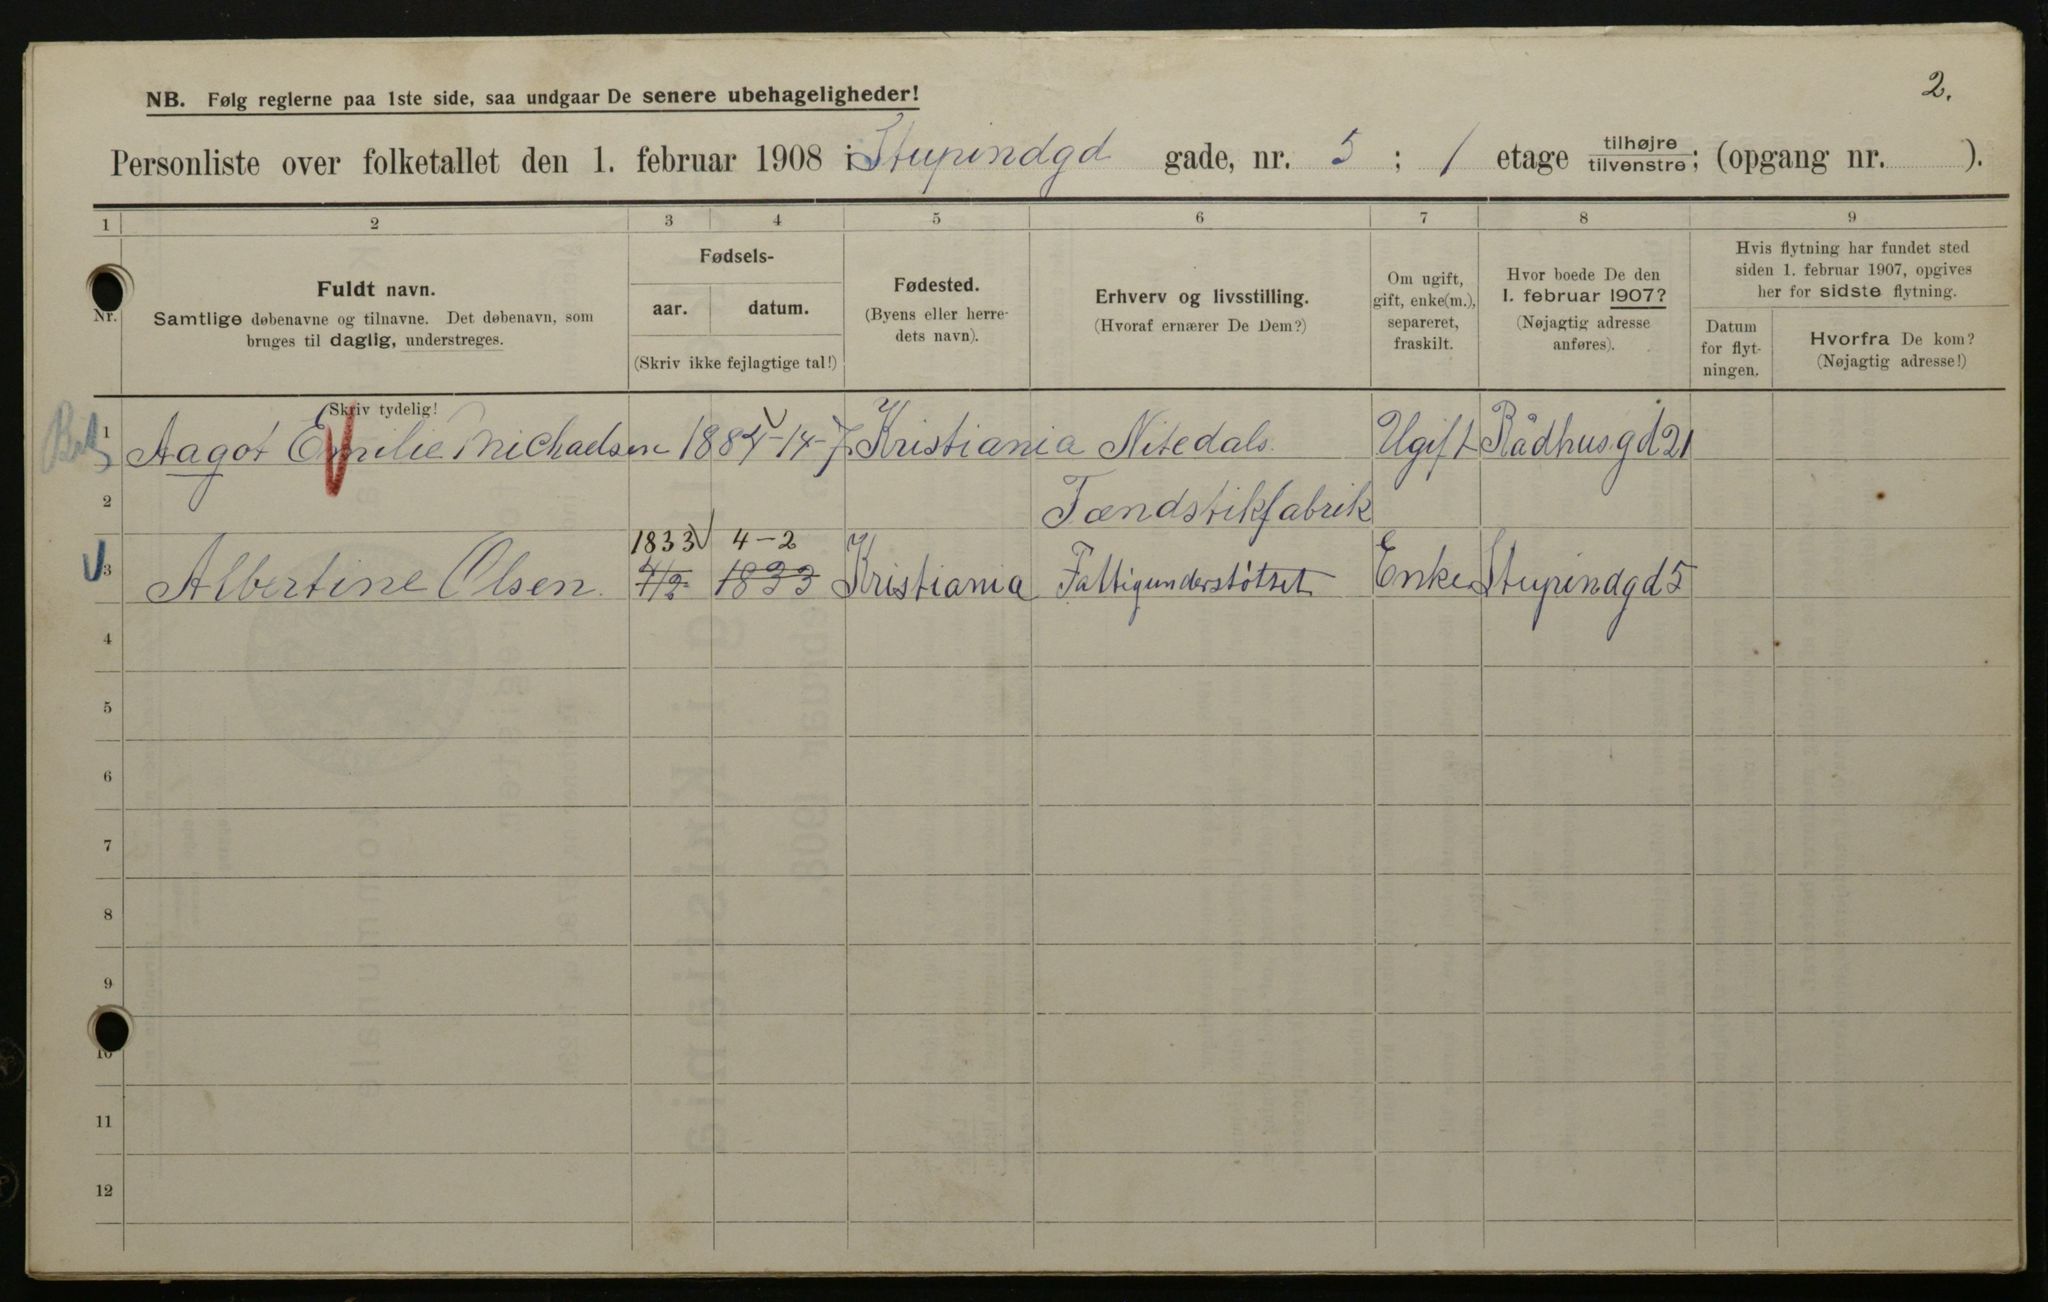 2.
NB. Følg reglerne paa 1ste side, saa undgaar De senere ubehageligheder!
Personliste over folketallet den 1. februar 1908 i Stupindgd gade, nr. 5; 1 etage tilhøjre/tilvenstre; (opgang nr. ).
1 2 3 4 5 6 7 8 9
Nr.
Fuldt navn.
Samtlige døbenavne og tilnavne. Det døbenavn, som
bruges til daglig, understreges.
Fødsels-
aar. datum.
(Skriv ikke fejlagtige tal!)
Fødested.
(Byens eller herre-
dets navn).
Erhverv og livsstilling.
(Hvoraf ernærer De Dem?)
Om ugift,
gift, enke(m.),
separeret,
fraskilt.
Hvor boede De den
1. februar 1907?
(Nøjagtig adresse
anføres).
Hvis flytning har fundet sted
siden 1. februar 1907, opgives
her for sidste flytning.
Datum
for flyt-
ningen.
Hvorfra De kom?
(Nøjagtig adresse!)
Skriv tydelig!
1 Aagot Emilie Michaelsen 1884 14-7 Kristiania Nitedals Ugift Rådhusgd 21
2 Tændstikfabrik
1833 4-2
3 Albertine Olsen 4/2 1833 Kristiania Fattigunderstøtset Enke Stupindgd 5
4
5
6
7
8
9
10
11
12